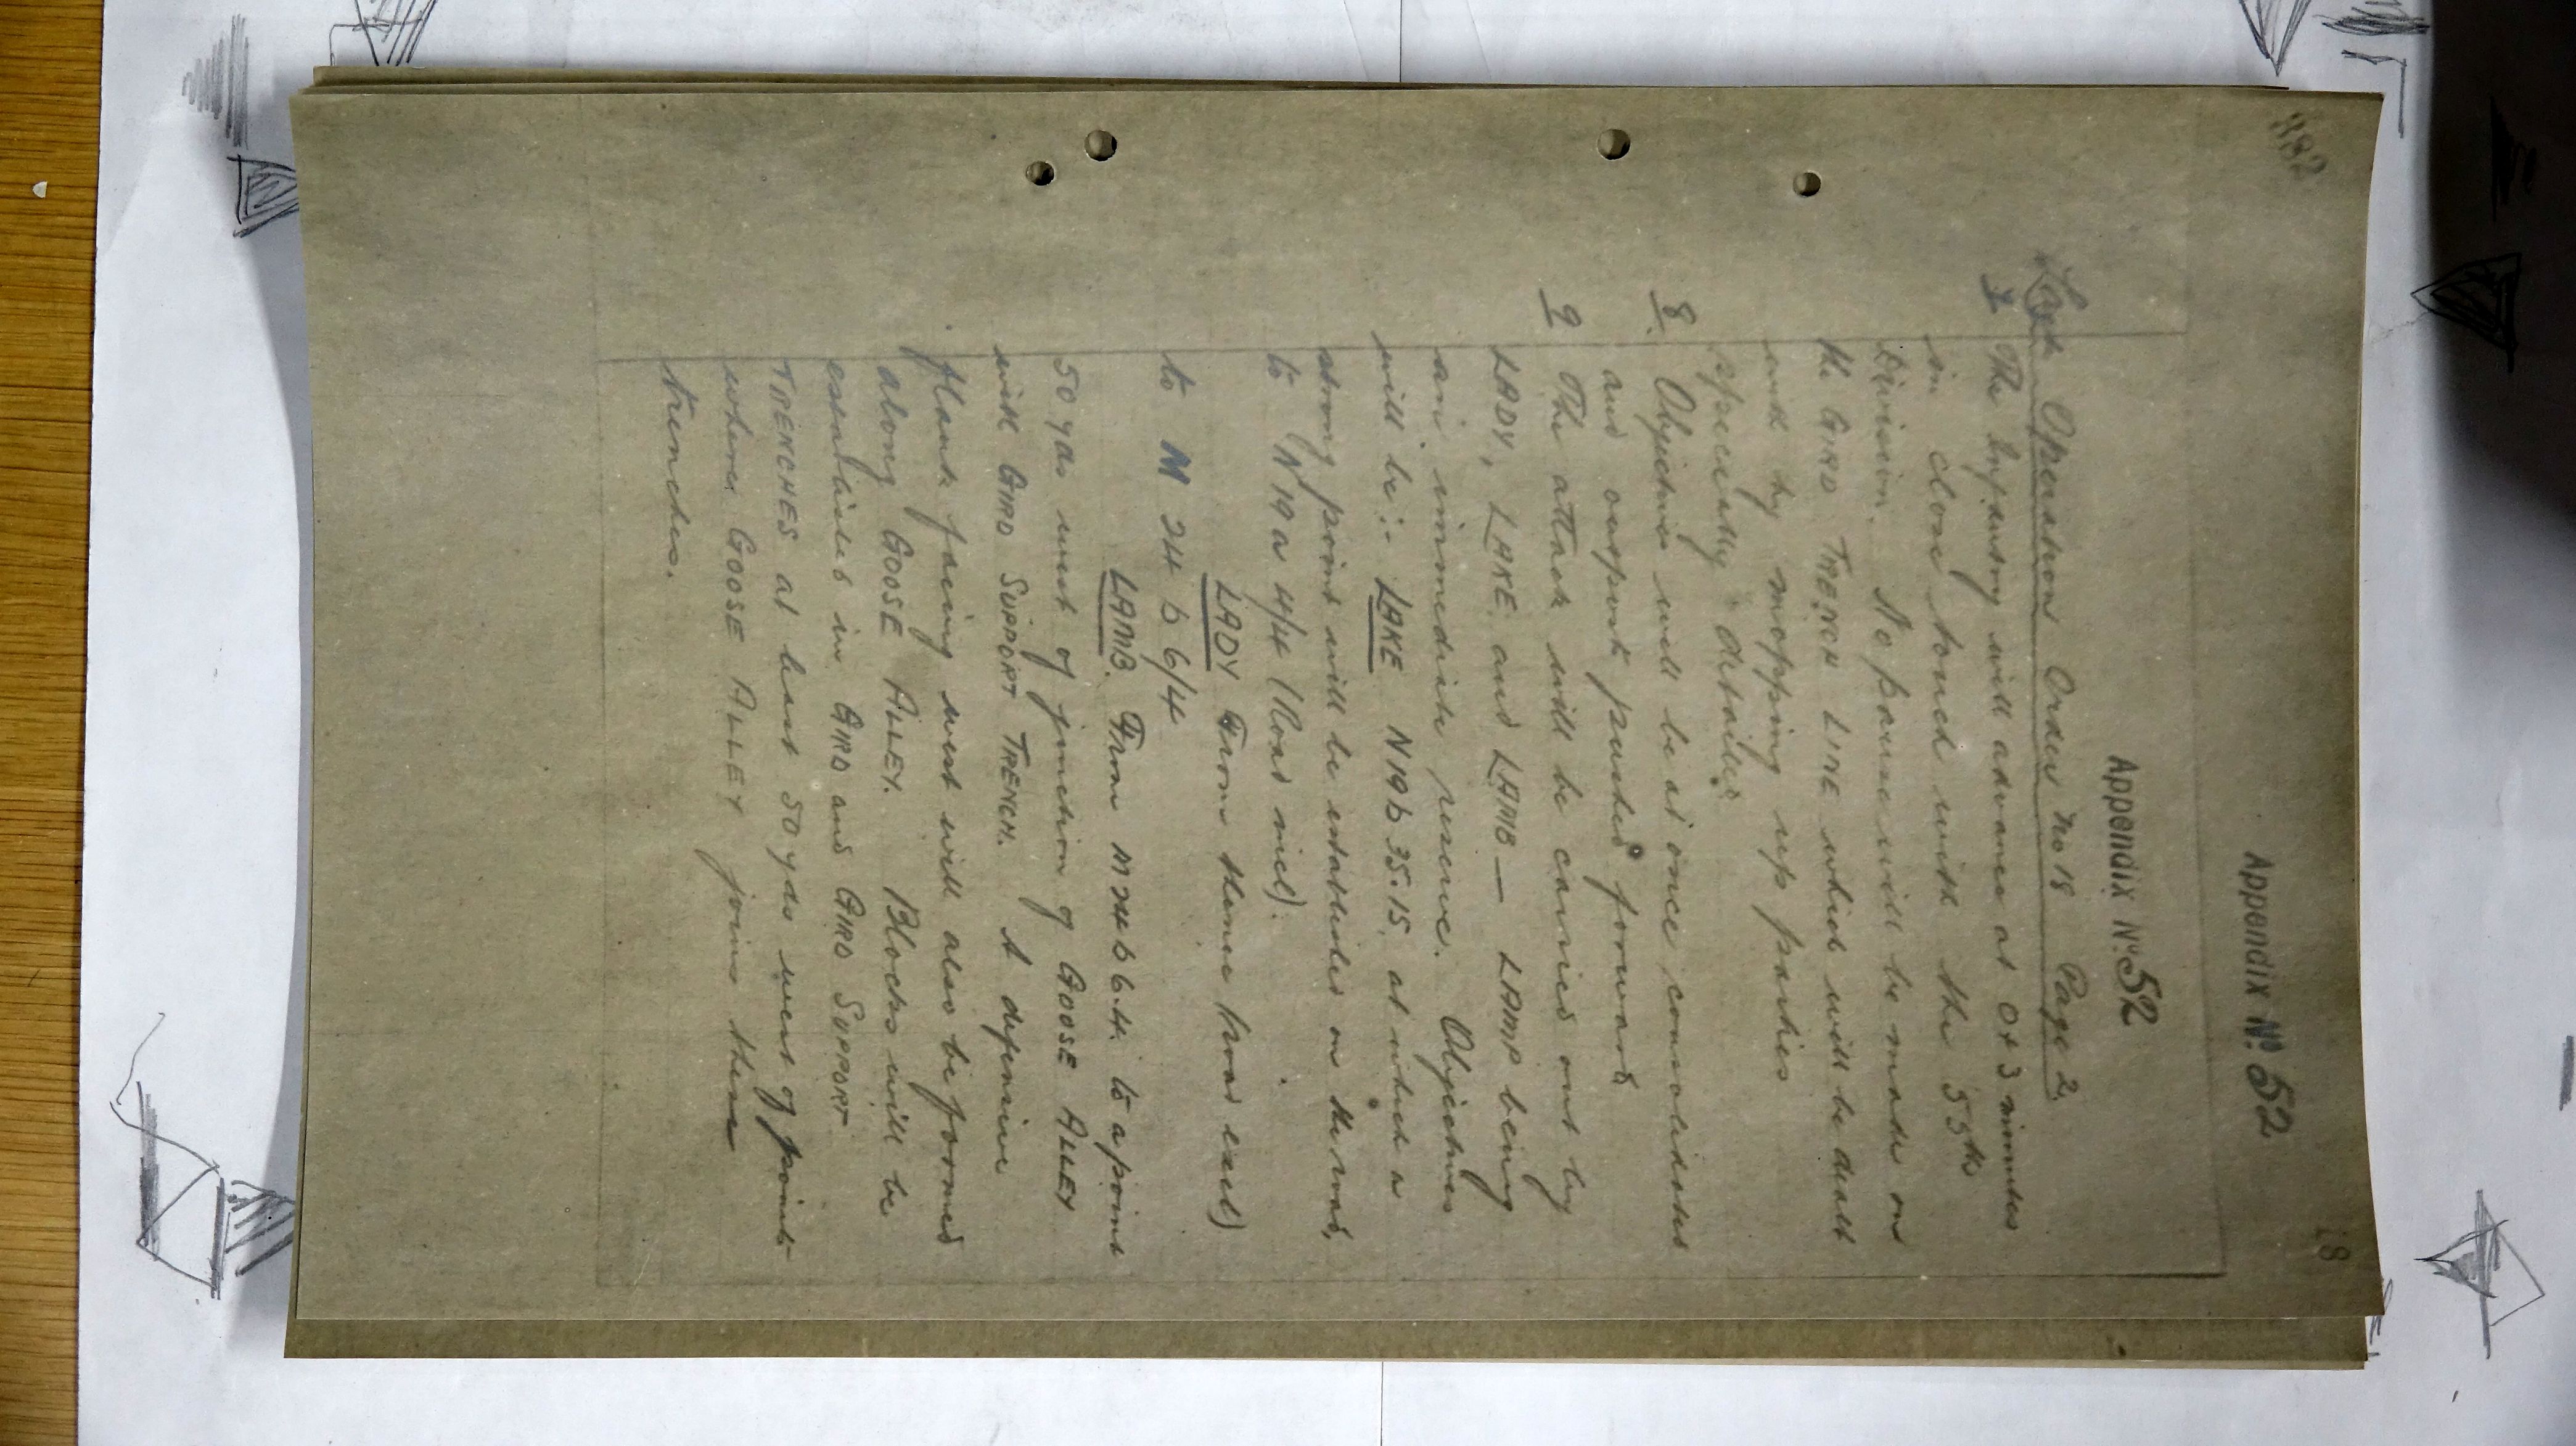 382
18
Appendix No. 52
Appendix No. 52
Operations Order No 18 Page 2.
7 The Infantry will advance at 0+3 minutes
in close touch with the 55th
Division. No pause will be made on
the GIRD TRENCH LINE which will be dealt
with by mopping up parties
specially detailed.
8. Objectives will be at once consolidated
and outpost pushed forward
9 The attack will be carried out by
LADY, LAKE and LAMB — LAMP being
in immediate reserve. Objectives
will be:- LAKE N19b 35.15. at which a
strong point will be established on the road,
to N19a 4/4 (Road incl).
LADY From thence (road excl)
to M 24 b 6/4
LAMB. From M 24 b 6.4. to a point
50 yds west of junction of GOOSE ALLEY
with GIRD SUPPORT TRENCH. A defensive
flank facing west will also be formed
along GOOSE ALLEY. Blocks will be
established in GIRD and GIRD SUPPORT
TRENCHES at least 50 yds west of points
where GOOSE ALLEY joins these
trenches.